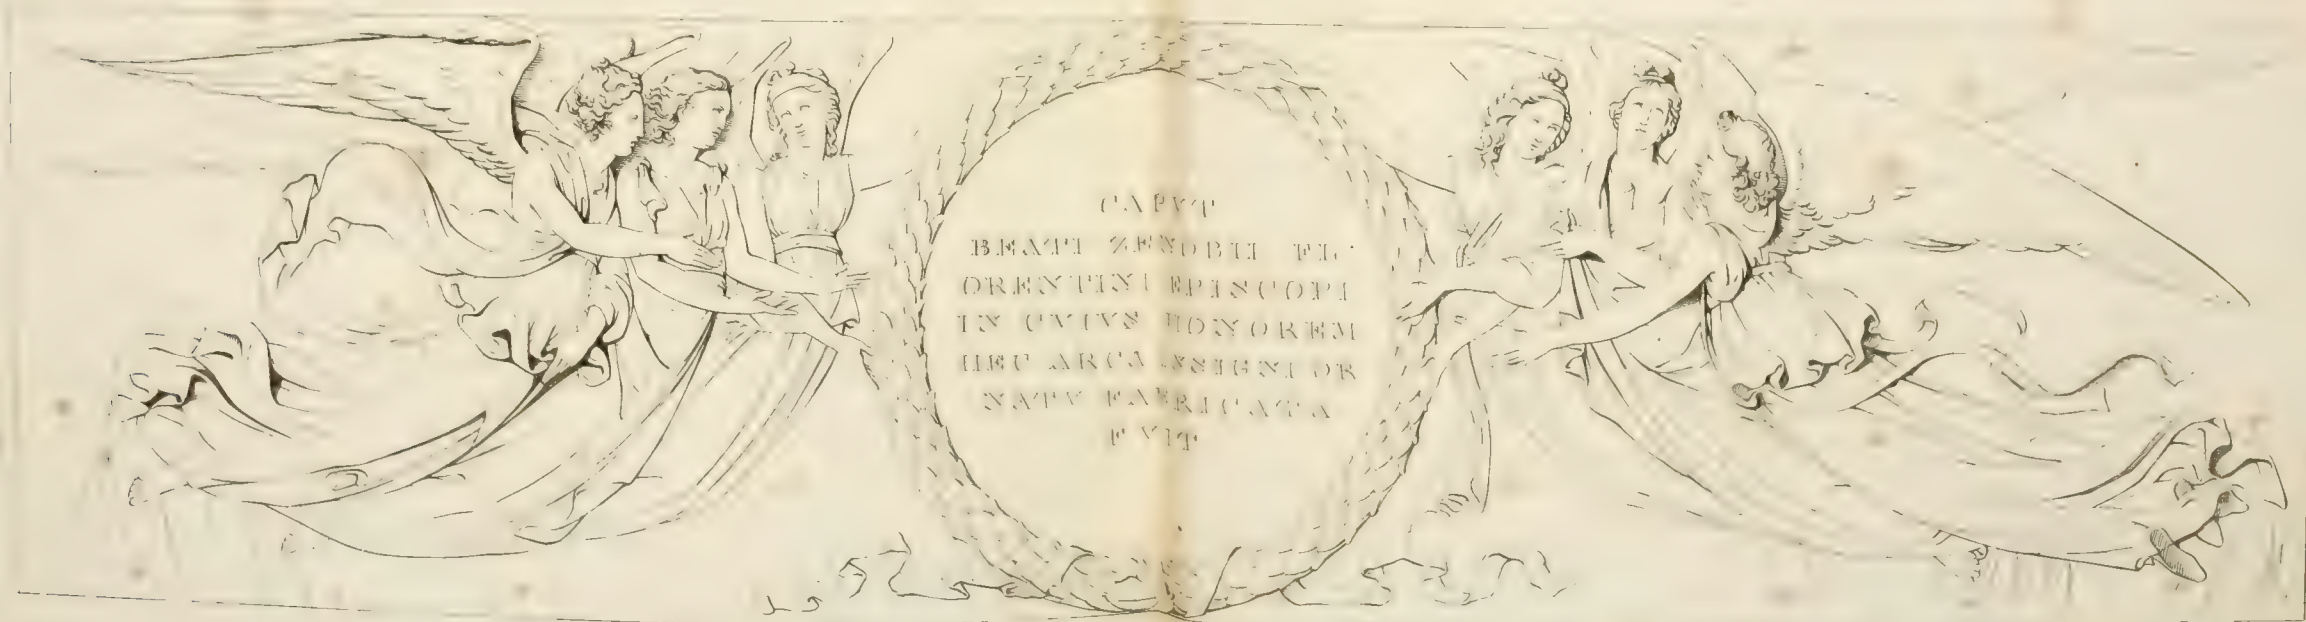 CAPVT
BEATI ZENOBII FL
ORENTINI EPISCOPI
IN CVIVS HONOREM
HEC ARCA INSIGNI OR
NATV FABRICATA
FVIT